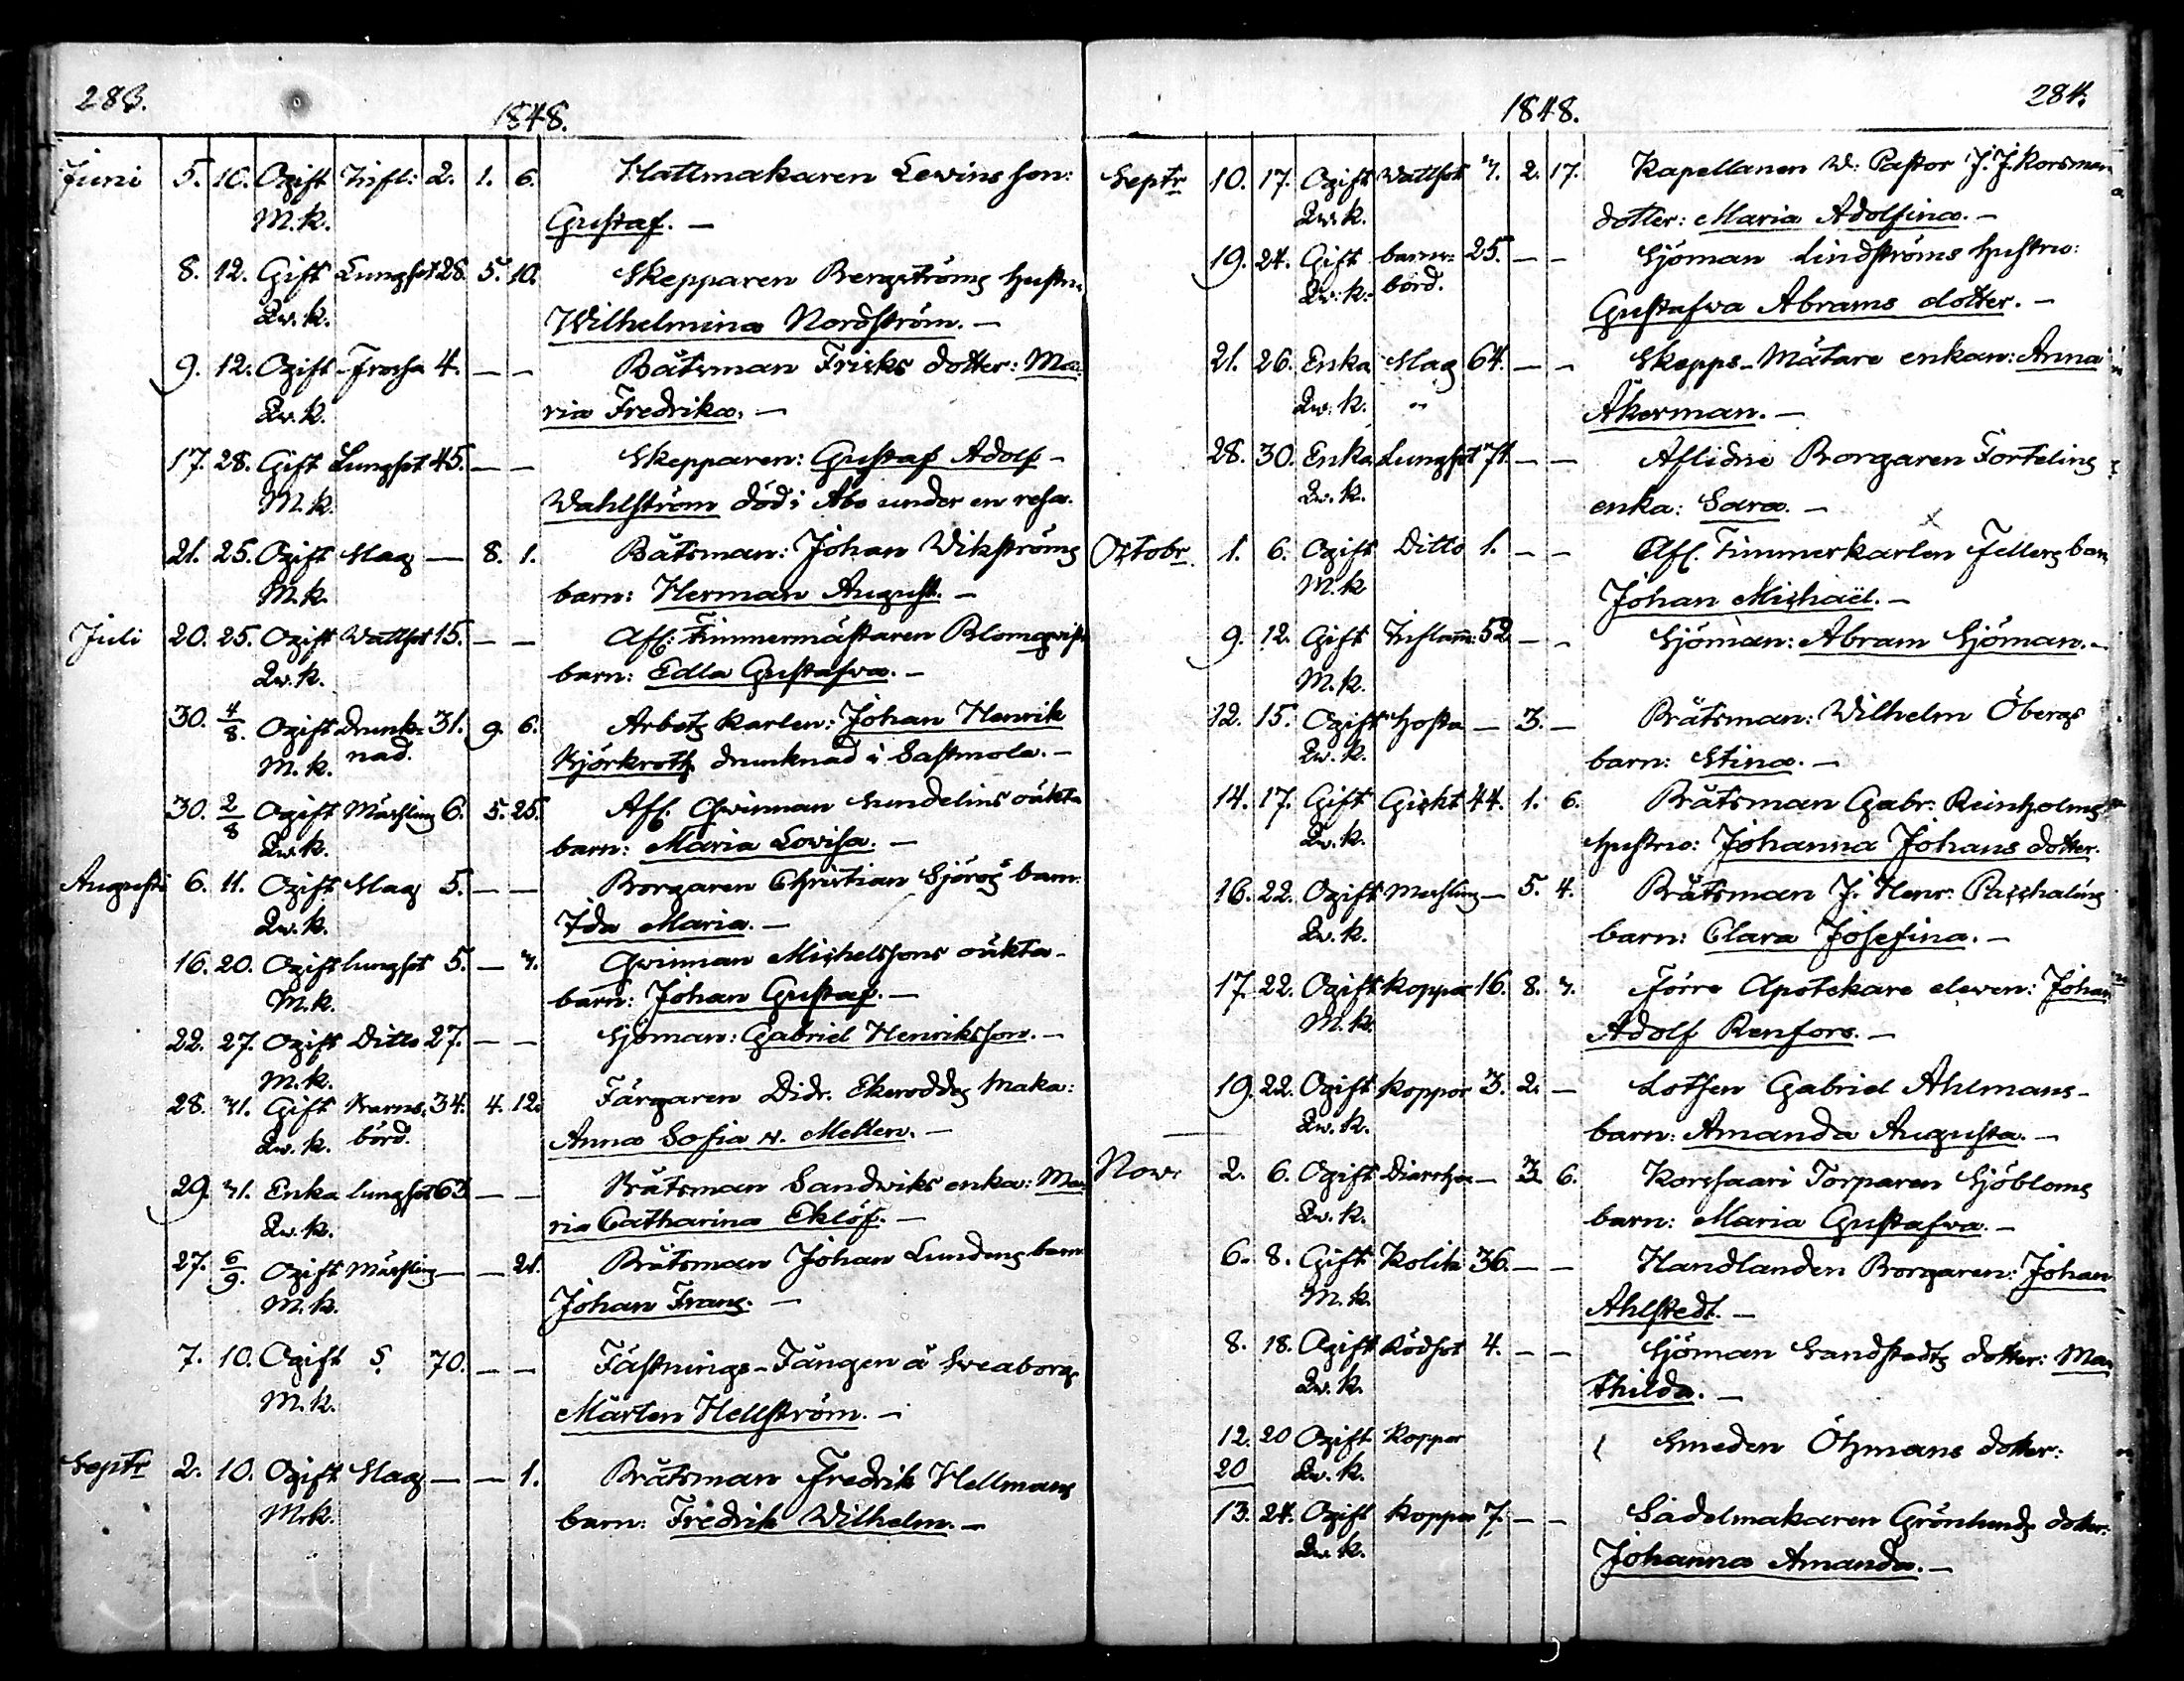 283.
1848.
Juni 5. 10. Ogift Infl: 2. 1. 6. Hattmakaren Levins son:
M.k. Gustaf. —
8. 12. Gift Lungsot 28. 5. 10. Skepparen Bergströms hustru
Qv. k. Wilhelmina Nordström. —
9. 12. Ogift Frossa 4. — — Båtsman Frisks dotter: Ma-
Qv. k. ria Fredrika. —
17. 28. Gift Lungsot 45. — — Skepparen: Gustaf Adolf
M. k. Wahlström död i Åbo under en resa.
21. 25. Ogift Slag — 8. 1. Båtsman: Johan Wikströms
M. k. barn: Herman August. —
Juli 20. 25. Ogift Wattsot 15. — — Afl: Timmermästaren Blomqvists
Qv. k. barn: Edla Gustafva. —
30. 4/8. Ogift drunk- 31. 9. 6. Arbets karlen: Johan Henrik
M. k. nad. Björkroth drunknad i Sastmola. —
30. 2/8 Ogift Mässling 6. 5. 25. Afl. Qvinnan Sundelins oäkta
Qv. k. barn: Maria Lovisa. —
Augusti 6. 11. Ogift Slag 5. — — Borgaren Christian Sjöros barn:
Qv. k. Ida Maria. —
16. 20. Ogift lungsot 5. — 7. Qvinnan Michelssons oäkta
M. k. barn: Johan Gustaf. —
22. 27. Ogift Ditto 27. — — Sjöman: Gabriel Henriksson. —
M. k.
28. 31. Gift Barns- 34. 4. 12. Färgaren Didr. Ekeroddes Maka:
Qv. k. börd. Anna Sofia v. Mellen. —
29. 31. Enka lungsot 63 — — Båtsman Sandviks enka: Ma-
Qv. k. ria Catharina Eklöf. —
27. 6/9. Ogift Mässling — — 21. Båtsman Johan Lundens barn
M. k. Johan Frans. —
7. 10. Ogift ? 70. — — Fästnings-Fången å Sveaborg
M. k. Mårten Hellström. —
Septr 2. 10. Ogift Slag — — 1. Båtsman Fredrik Hellmans
M. k. barn: Fredrik Wilhelm. —
284.
1848.
Septr 10. 17. Ogift Wattsot 7. 2. 17. Kapellanen W: Pastor J. J. Korsman
Qv. k. dotter: Maria Adolfina. —
19. 24. Gift barns- 25. — — Sjöman Lindströms hustru:
Qv: k: börd. Gustafva Abrams dotter. —
21. 26. Enka Slag 64. — — Skepps-Mätare enkan: Anna
Qv. k. Åkerman. —
28. 30. Enka Lungsot 71. — — Aflidne Borgaren Fortelins
Qv. k. enka: Sara. —
Octobr 1. 6. Ogift Ditto 1. — — Afl. Timmerkarlen Fellers barn
M. k Johan Michaël. —
9. 12. Gift Inflam: 52 — — Sjöman: Abram Sjöman. —
M. k.
12. 15. Ogift Hosta — 3. — Båtsman: Wilhelm Öbergs
Qv. k. barn: Stina. —
14. 17. Gift Gickt 44. 1. 6. Båtsman Gabr: Reinholms
Qv. k. hustru: Johanna Johans dotter.
16. 22. Ogift Messling — 5. 4. Båtsman J. Henr: Paschalins
Qv. k. barn: Clara Josefina. —
17. 22. Ogift Koppor 16. 8. 7. Förre Apotekare eleven: Johan
M. k. Adolf Renfors. —
19. 22. Ogift Koppor 3. 2. — Lotsen Gabriel Ahlmans
Qv. k. barn: Amanda Augusta. —
Novr 2. 6. Ogift Diarrhæ — 3. 6. Korssaari Torparen Sjöbloms
Qv. k. barn: Maria Gustafva. —
6. 8. Gift Kolik 36. — — Handlanden Borgaren: Johan
M. k. Ahlstedt. —
8. 18. Ogift Rödsot 4. — — Sjöman Sandstedts dotter: Ma-
Qv. k. thilda. —
12. 20 Ogift Koppor Smeden Öhmans dotter:
20 Qv. k.
13. 24. Ogift Koppor 7. — — Sadelmakaren Grönlunds dotter:
Qv. k. Johanna Amanda. —